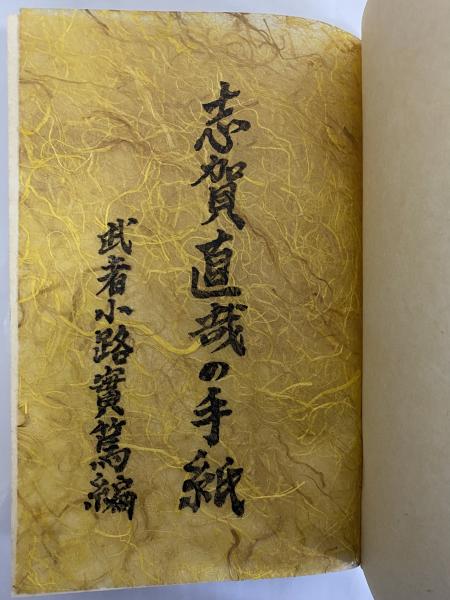 志賀直哉の手紙
武者小路實篤編